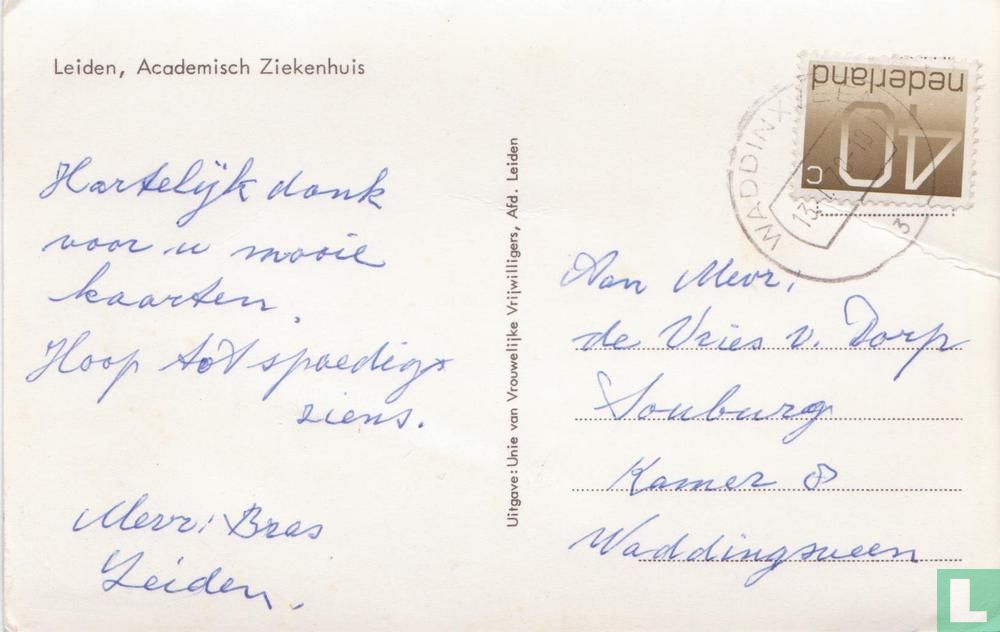 Leiden, Academisch Ziekenhuis
Hartelijk dank
voor u mooie
kaarten.
Hoop tot spoedig
ziens.
Mevr. Bras
Leiden.
Uitgave: Unie van Vrouwelijke Vrijwilligers, Afd. Leiden
nederland
40
c
WADDINXVEEN
3
Aan Mevr.
de Vries v. Dorp
Souburg
Kamer 8
Waddingsveen
L